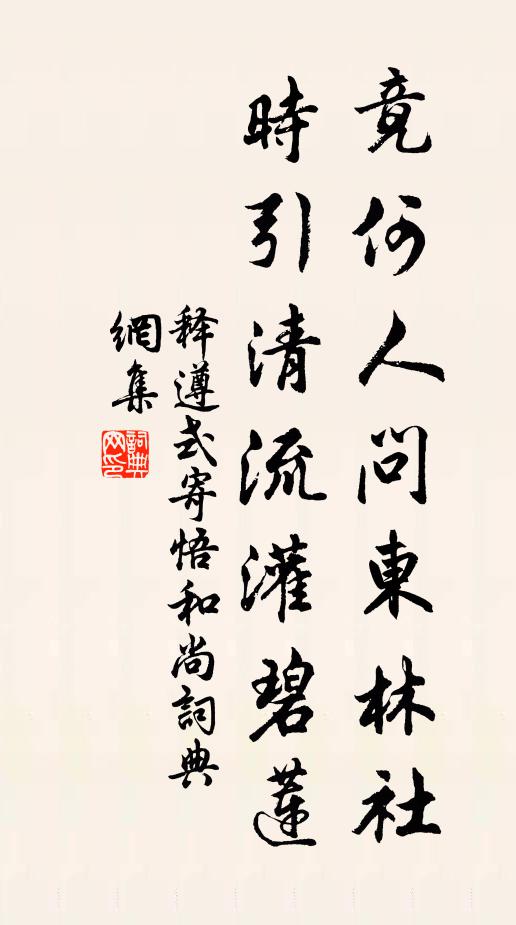 竟何人問東林社
時引清流灌碧蓮
释遵式寄悟和尚詞典
網集
詞典
网印